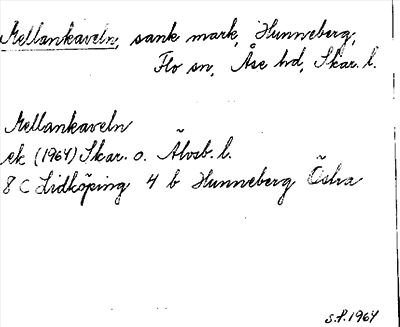 Mellankaveln, sank mark, Hunneberg,
Flo sn, Åse hd, Skar. l.
Mellankaveln
ek (1964) Skar. o. Älvsb. l.
8 C Lidköping 4 b Hunneberg Östra
S.F. 1964